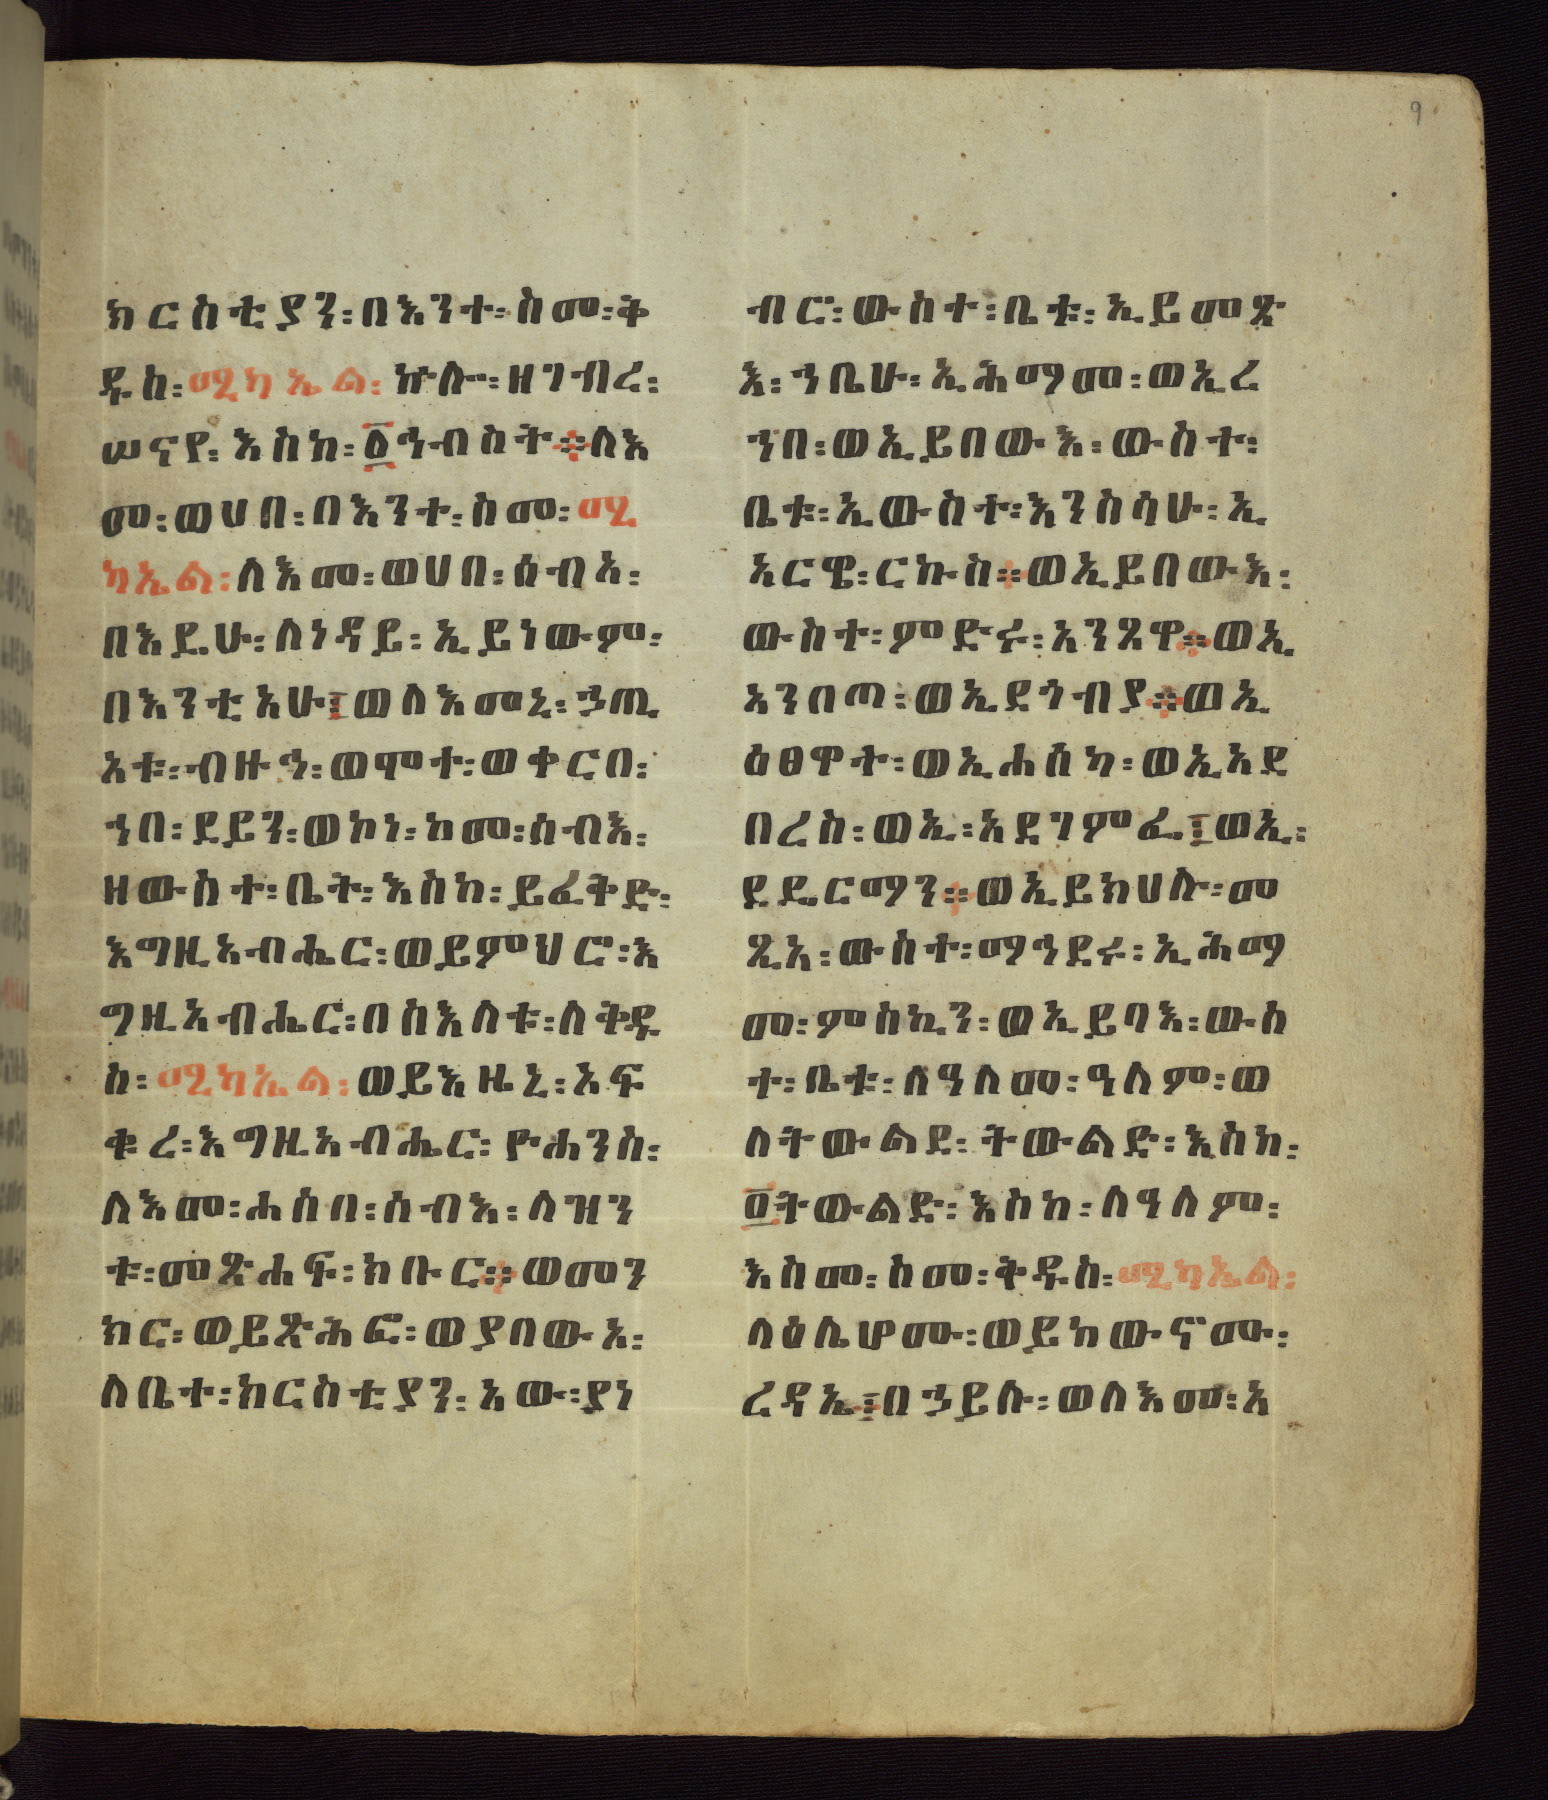 9
ክርስቲያን፡በእንተ፡ስመ፡ቅ
ዱስ፡ሚካኤል፡ኵሎ፡ዘገብረ፡
ሠናየ፡እስከ፡፬ኅብስት።ለእ
መ፡ወሀበ፡በእንተ፡ስመ፡ሚ
ካኤል፡ለእመ፡ወሀበ፡ሰብእ፡
በእዴሁ፡ለነዳይ፡ኢይነውም፡
በእንቲአሁ፤ወለእመኒ፡ኃጢ
አቱ፡ብዙኅ፡ወሞተ፡ወቀርበ፡
ኀበ፡ደይን፡ወኮነ፡ከመ፡ሰብእ፡
ዘውስተ፡ቤት፡እስከ፡ይፈቅድ፡
እግዚአብሔር፡ወይምህሮ፡እ
ግዚአብሔር፡በስእለቱ፡ለቅዱ
ስ፡ሚካኤል፡ወይእዜኒ፡አፍ
ቁረ፡እግዚአብሔር፡ዮሐንስ፡
ለእመ፡ሐሰበ፡ሰብእ፡ለዝን
ቱ፡መጽሐፍ፡ክቡር።ወመን
ክር፡ወይጽሕፎ፡ወያበውአ፡
ለቤተ፡ክርስቲያን፡አው፡ያነ
ብር፡ውስተ፡ቤቱ፡ኢይመጽ
እ፡ኀቤሁ፡ኢሕማመ፡ወኢረ
ኀበ፡ወኢይበውእ፡ውስተ፡
ቤቱ፡ኢውስተ፡እንስሳሁ፡ኢ
ኣርዌ፡ርኩስ።ወኢይበውእ፡
ውስተ፡ምድሩ፡አንጸዋ።ወኢ
አንበጣ፡ወኢደጎብያ።ወኢ
ዕፀዋት፡ወኢሐሰካ፡ወኢአደ
በረስ፡ወኢ፡አደገምፌ፤ወኢ፡
ደዴርማን።ወኢይክህሉ፡መ
ጺአ፡ውስተ፡ማኅደሩ፡ኢሕማ
መ፡ምስኪን፡ወኢይባእ፡ውስ
ተ፡ቤቱ፡ለዓለመ፡ዓለም፡ወ
ለትውልደ፡ትውልድ፡እስከ፡
፬ትውልድ፡እስከ፡ለዓለም፡
እስመ፡ስመ፡ቅዱስ፡ሚካኤል፡
ላዕሌሆሙ፡ወይከውኖሙ፡
ረዳኤ፤በኃይሉ፡ወለእመ፡አ